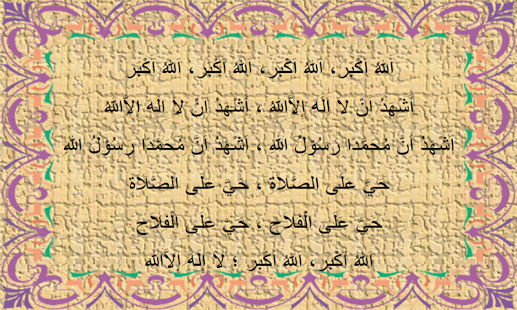 اللهُ اَكْبَر، اللهُ اَكْبَر، اللهُ اَكْبَر، اللهُ اَكْبَر
اَشْهَدُ اَنْ لَا اِلٰهَ اِلَّااللهُ ، اَشْهَدُ اَنْ لَا اِلٰهَ اِلَّااللهُ
اَشْهَدُ اَنَّ مُحَمَّدًا رَسُوْلُ اللهِ ، اَشْهَدُ اَنَّ مُحَمَّدًا رَسُوْلُ اللهِ
حَيَّ عَلَى الصَّلَاة ، حَيَّ عَلَى الصَّلَاة
حَيَّ عَلَى الْفَلَاح ، حَيَّ عَلَى الْفَلَاح
اللهُ اَكْبَر، اللهُ اَكْبَر ؛ لَا اِلٰهَ اِلَّااللهُ